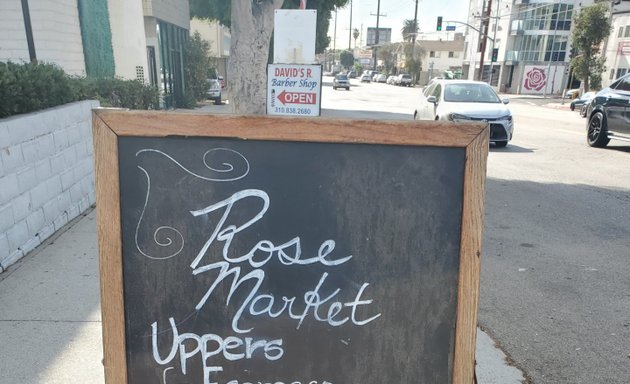 DAVID'S R.
Barber Shop
OPEN
310.838.2680
Rose
Market
Uppers